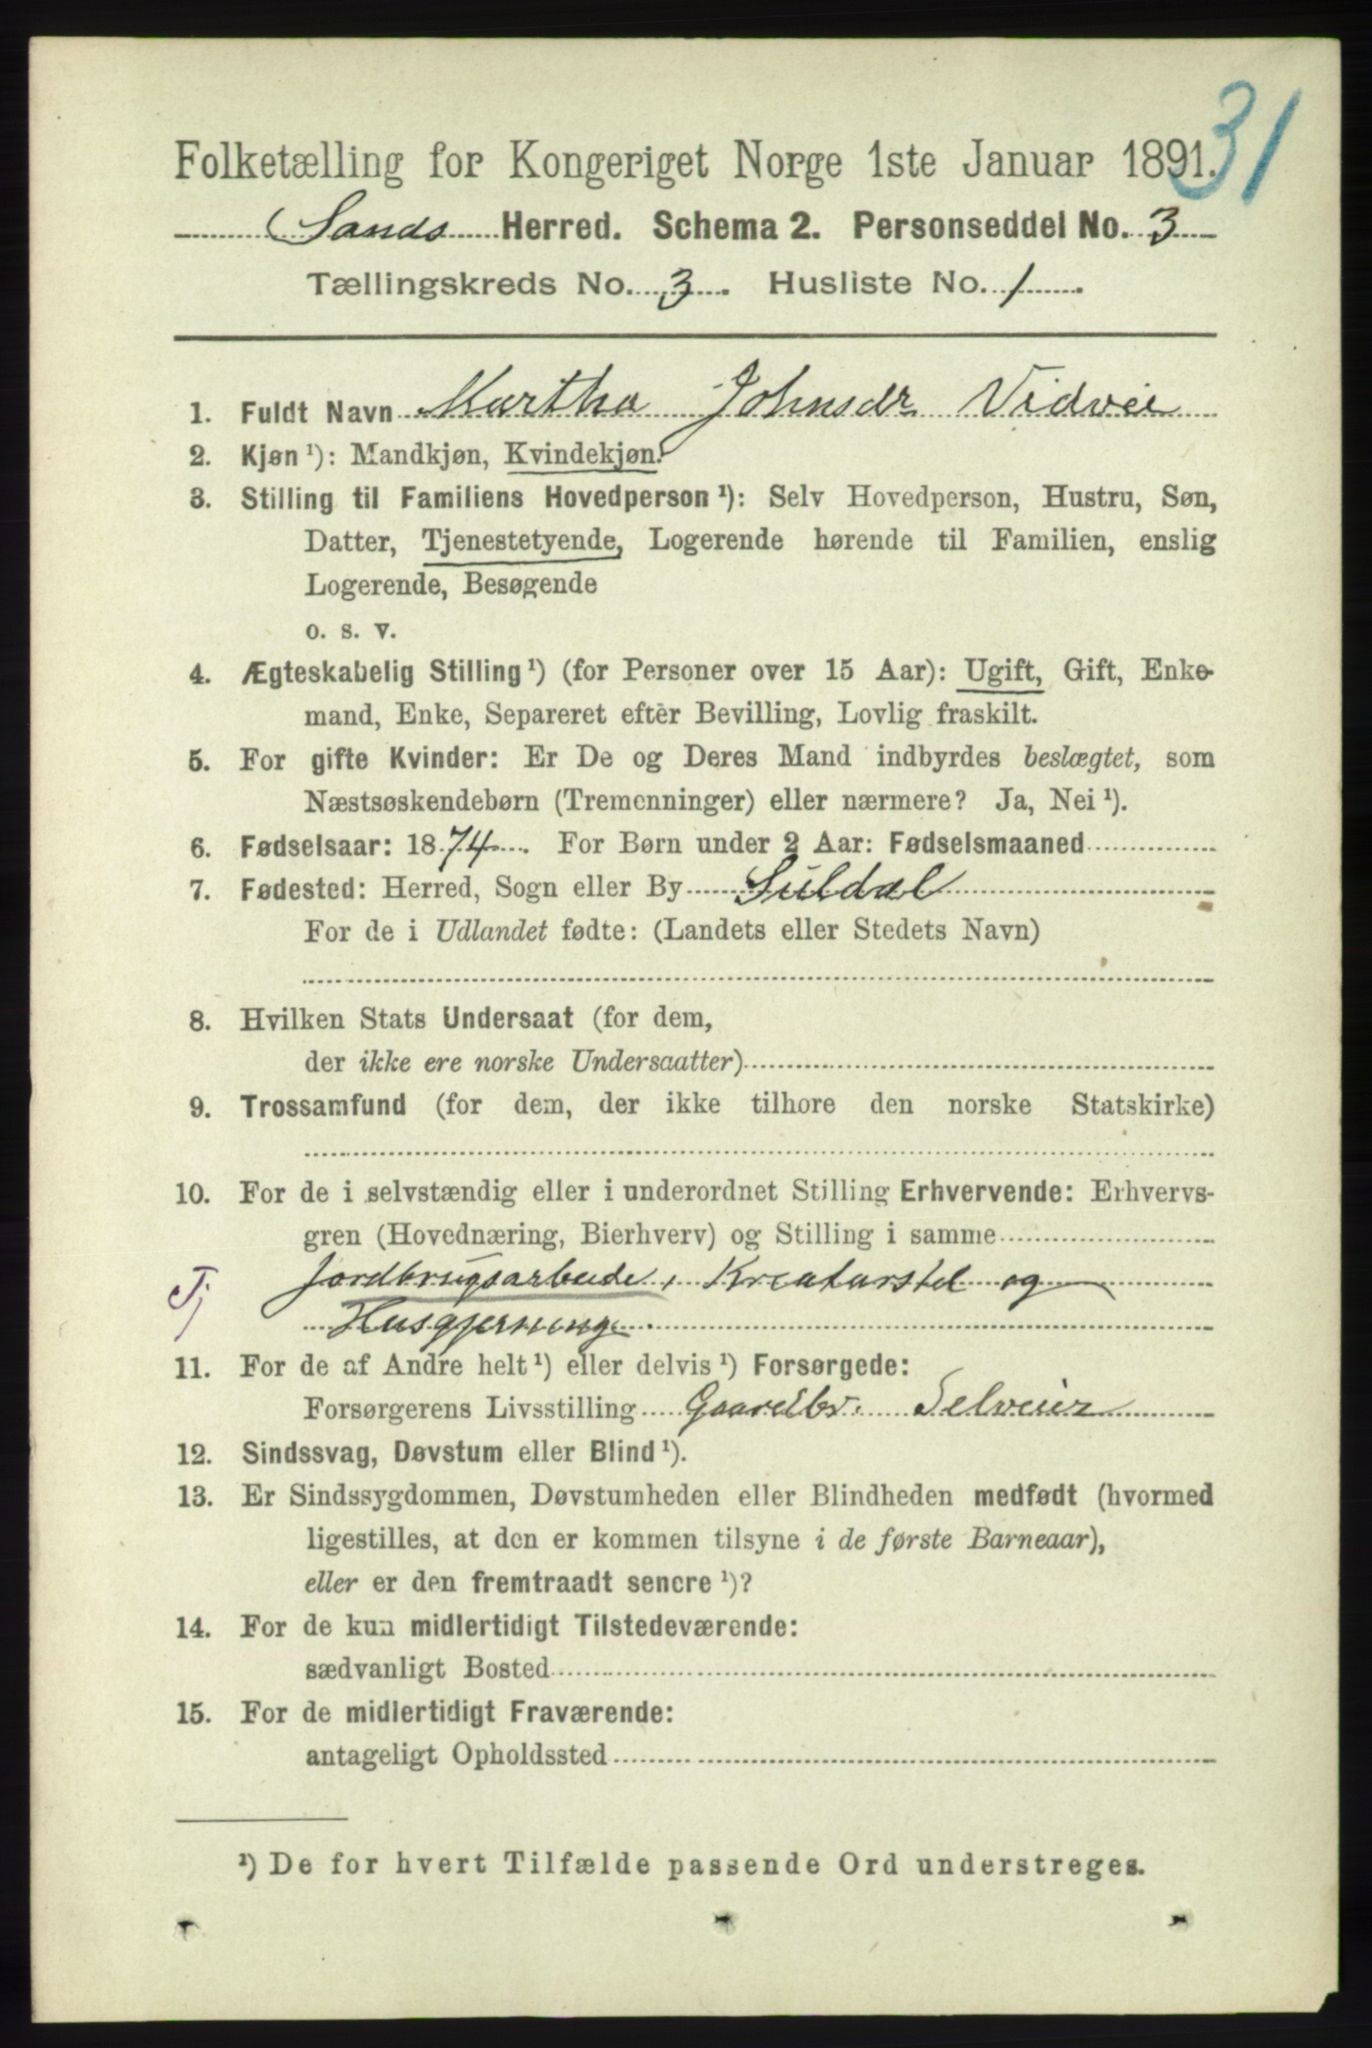 31
Folketælling for Kongeriget Norge 1ste Januar 1891.
Sands Herred. Schema 2. Personseddel No. 3
Tællingskreds No. 3. Husliste No. 1.
1. Fuldt Navn Martha Johnsdr Vidvei
2. Kjøn ¹): Mandkjøn, Kvindekjøn.
3. Stilling til Familiens Hovedperson ¹): Selv Hovedperson, Hustru, Søn,
Datter, Tjenestetyende, Logerende hørende til Familien, enslig
Logerende, Besøgende
o. s. v.
4. Ægteskabelig Stilling ¹) (for Personer over 15 Aar): Ugift, Gift, Enke-
mand, Enke, Separeret efter Bevilling, Lovlig fraskilt.
5. For gifte Kvinder: Er De og Deres Mand indbyrdes beslægtet, som
Næstsøskendebørn (Tremenninger) eller nærmere? Ja, Nei ¹).
6. Fødselsaar: 1874. For Børn under 2 Aar: Fødselsmaaned
7. Fødested: Herred, Sogn eller By Suldal
For de i Udlandet fødte: (Landets eller Stedets Navn)
8. Hvilken Stats Undersaat (for dem,
der ikke ere norske Undersaatter)
9. Trossamfund (for dem, der ikke tilhore den norske Statskirke)
10. For de i selvstændig eller i underordnet Stilling Erhvervende: Erhvervs-
gren (Hovednæring, Bierhverv) og Stilling i samme
Tj Jordbrugsarbeide, Kreaturstel og
Husgjerning.
11. For de af Andre helt ¹) eller delvis ¹) Forsørgede:
Forsørgerens Livsstilling Gaardbr. Selveier
12. Sindssvag, Døvstum eller Blind ¹).
13. Er Sindssygdommen, Døvstumheden eller Blindheden medfødt (hvormed
ligestilles, at den er kommen tilsyne i de første Barneaar),
eller er den fremtraadt senere ¹)?
14. For de kun midlertidigt Tilstedeværende:
sædvanligt Bosted
15. For de midlertidigt Fraværende:
antageligt Opholdssted
¹) De for hvert Tilfælde passende Ord understreges.